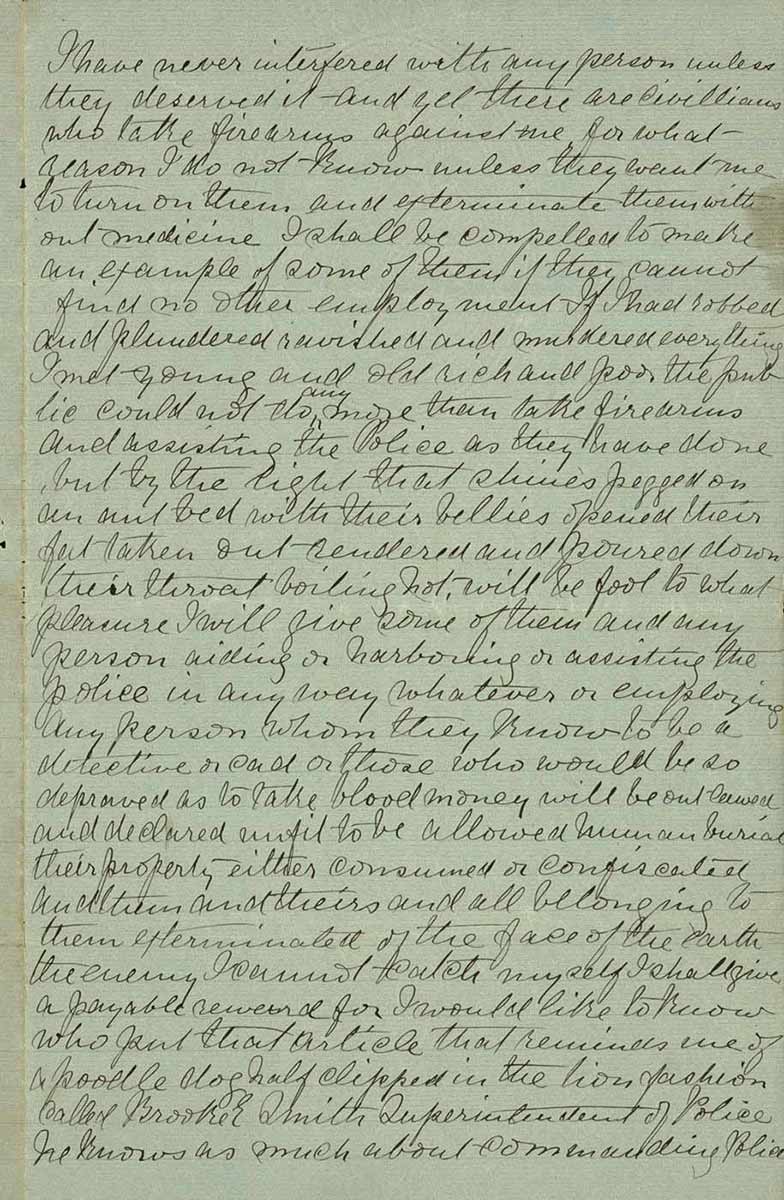 I have never interfered with any person unless
they deserved it and yet there are civillians
who take firearms against me for what
reason I do not know unless they want me
to turn on them and exterminate them with
out medicine I shall be compelled to make
an example of some of them if they cannot
find no other employment If I had robbed
and plundered ravished and murdered everything
I met young and old rich and poor the pub
lic could not do any more than take firearms
and assisting the Police as they have done
but by the light that shines pegged on
an ant bed with their bellies opened their
fat taken out rendered and poured down
their throat boiling hot, will be fool to what
pleasure I will give some of them and any
person aiding or harboring or assisting the
police in any way whatever or employing
any person whom they know to be a
detective or cad or those who would be so
depraved as to take blood money will be outlawed
and declared unfit to be allowed human burial
their property either consumed or confiscated
and them and theirs and all belonging to
them exterminated of the face of the earth
the enemy I cannot catch myself I shall give
a payable reward for I would like to know
who put that article that reminds me of
a poodle dog half clipped in the lion fashion
called Brooke E Smith Superintendent of Police
he knows as much about commanding Police